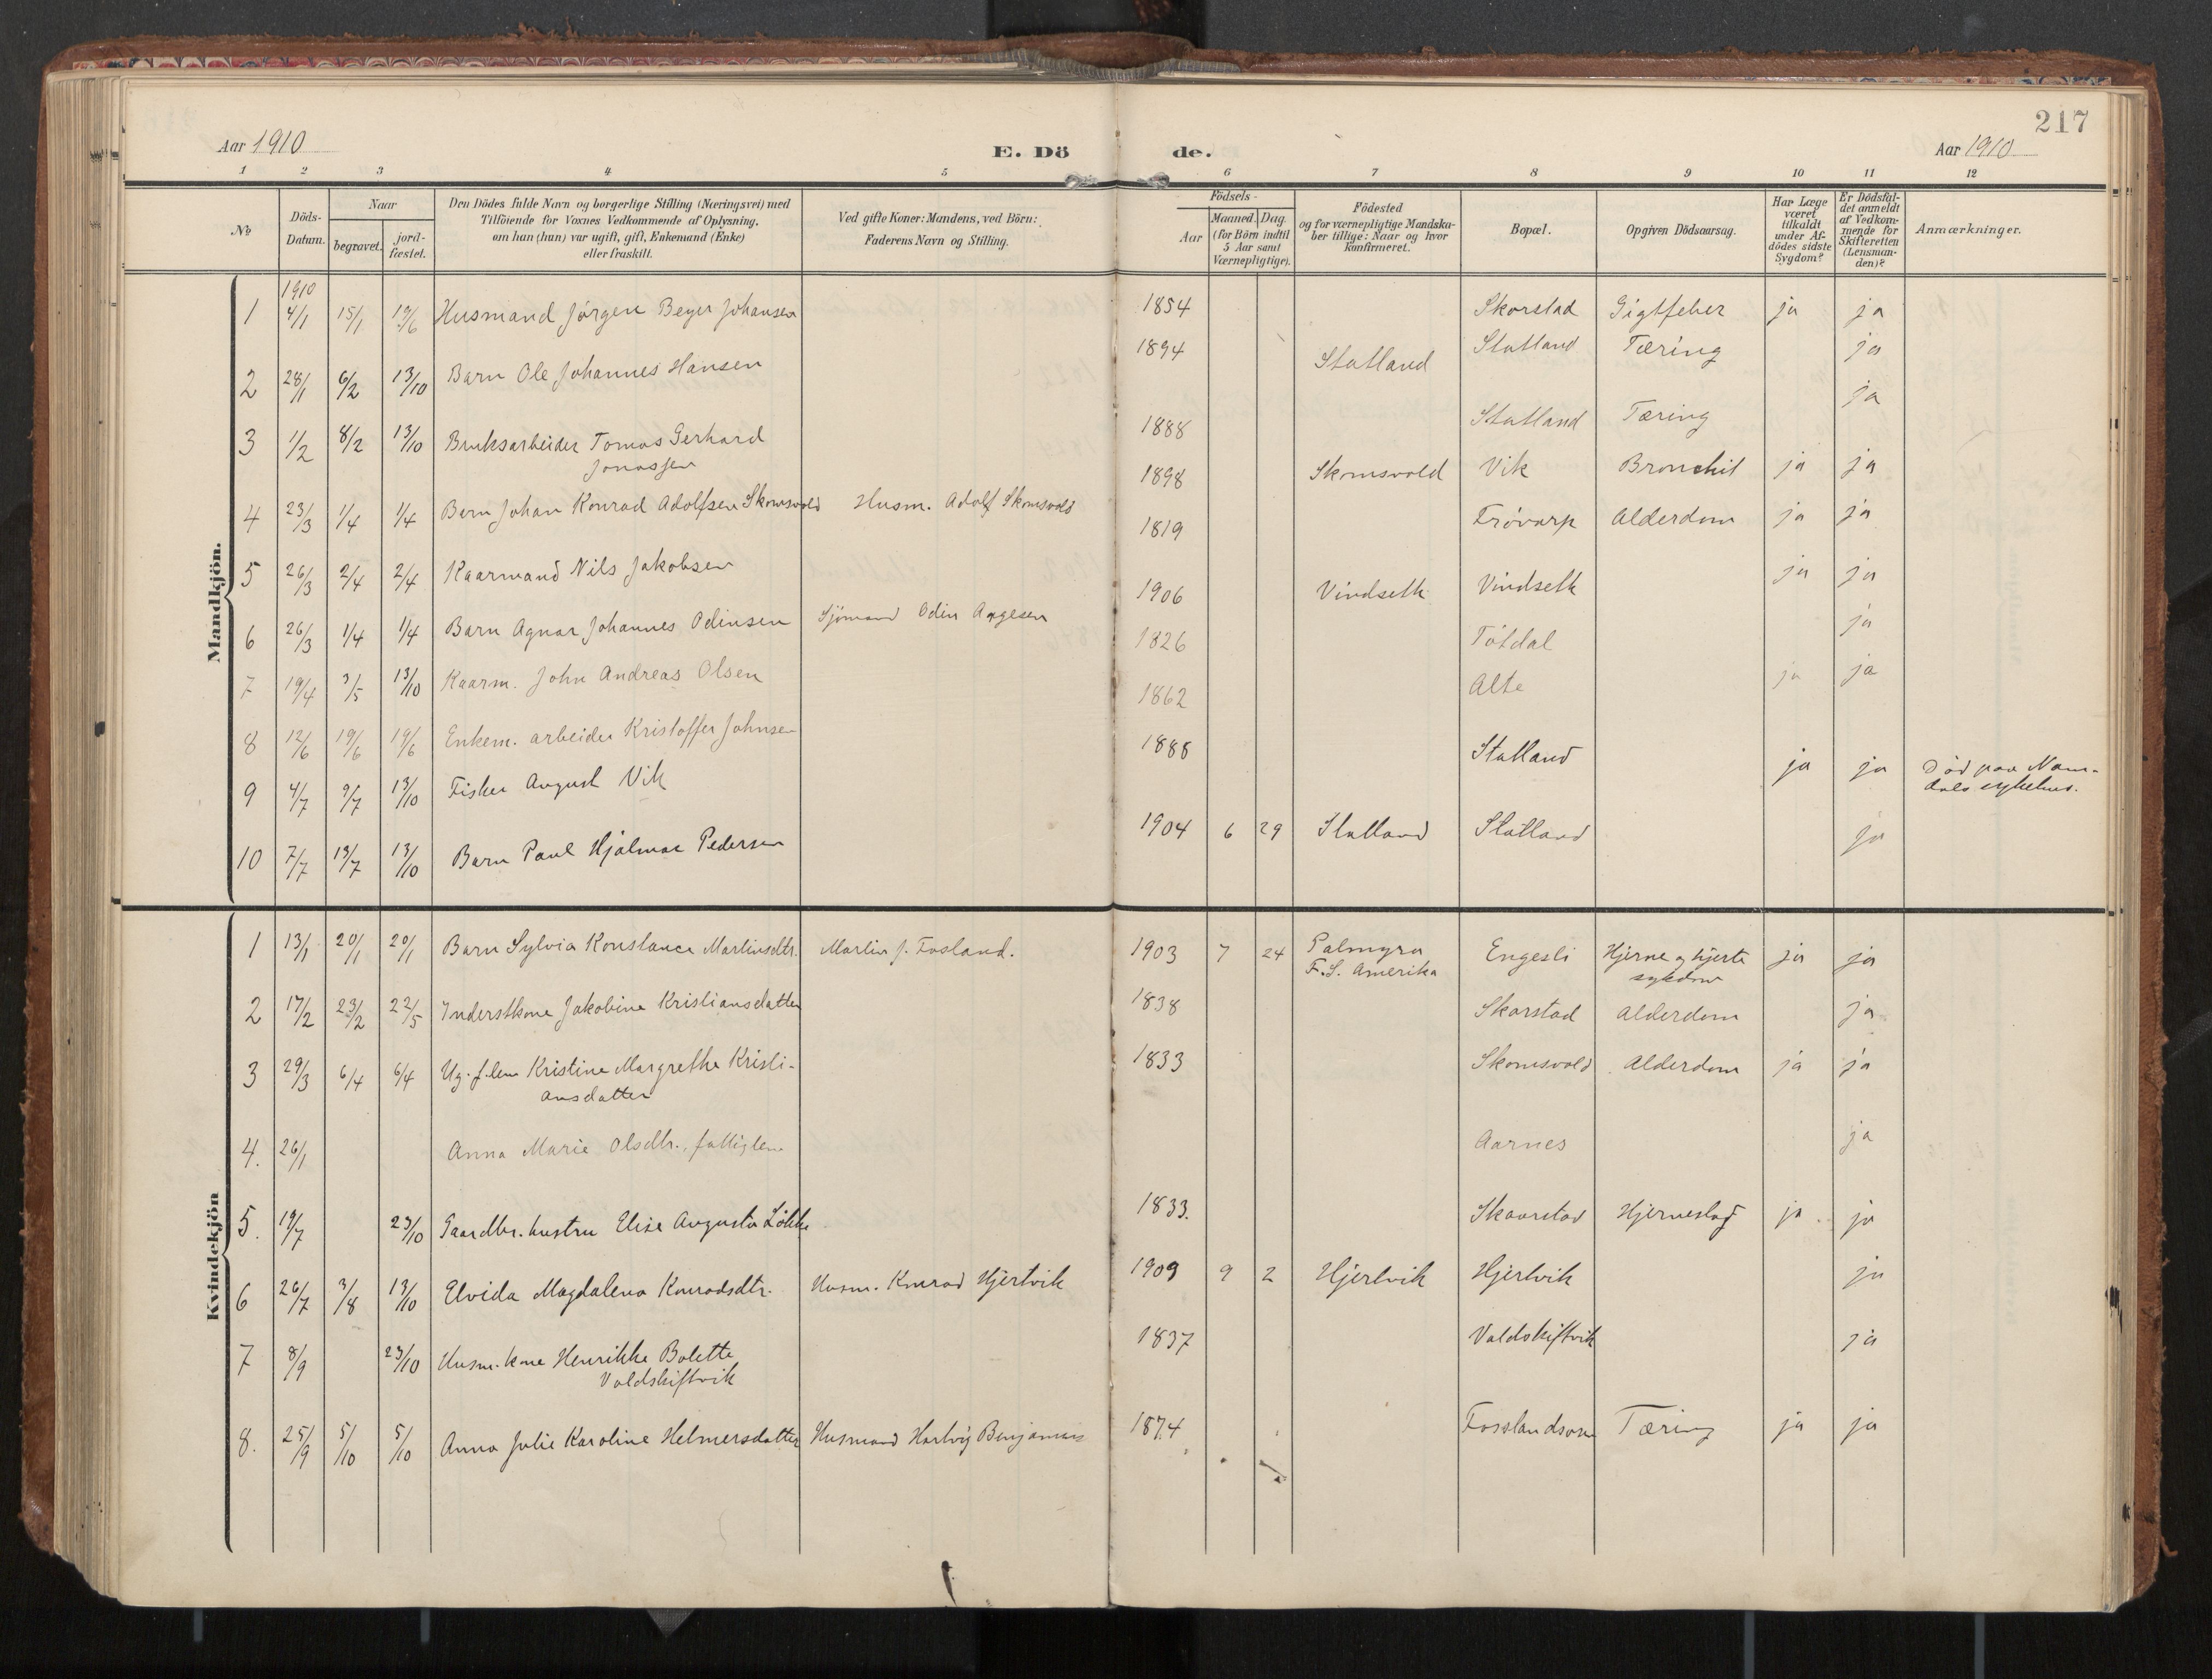 217
Aar 1910 E. Dö de. Aar 1910
1 2 3 4 5 6 7 8 9 10 11 12
№
Döds-Datum.
Naar
begravet.
jord-fæstet.
Den Dödes fulde Navn og borgerlige Stilling (Næringsvei) med
Tilföiende for Voxnes Vedkommende af Oplysning,
om han (hun) var ugift, gift, Enkemand (Enke)
eller fraskilt.
Ved gifte Koner: Mandens, ved Börn:
Faderens Navn og Stilling.
Födsels-
Aar
Maaned. Dag.
(for Börn indtil
5 Aar samt
Værnepligtige).
Födested
og for værnepligtige Mandska-
ber tillige: Naar og hvor
konfirmeret.
Bopæl.
Opgiven Dödsaarsag.
Har Læge
været
tilkaldt
under Af-
dödes sidste
Sygdom?
Er Dödsfal-
det anmeldt
af Vedkom-
mende for
Skifteretten
(Lensman-
den)?
Anmærkninger.
Mandkjön.
1910
1 4/1 15/1 19/6 Husmand Jörgen Beyer Johansen 1854 Skorstad Gigtfeber ja ja
2 28/1 6/2 13/10 Barn Ole Johannes Hansen 1894 Statland Statland Tæring ja
3 1/2 8/2 13/10 Bruksarbeider Tomas Gerhard 1888 Statland Tæring ja
Jonassen
4 23/3 1/4 1/4 Barn Johan Konrad Adolfsen Skomsvold Husm. Adolf Skomsvold 1898 Skomsvold Vik Bronchit ja ja
5 26/3 2/4 2/4 Kaarmand Nils Jakobsen 1819 Frövarp Alderdom ja ja
6 26/3 1/4 1/4 Barn Agnar Johannes Odinsen Sjömand Odin Aagesen 1906 Vindseth Vindseth ja ja
7 19/4 3/5 13/10 Kaarm. John Andreas Olsen 1826 Tötdal ja
8 12/6 19/6 19/6 Enkem. arbeider Kristoffer Johnsen 1862 Alte ja ja
9 4/7 9/7 13/10 Fisker August Vik 1888 Statland ja ja Död paa Nam-
dals sykehus.
10 7/7 13/7 13/10 Barn Paul Hjalmar Pedersen 1904 6 29 Statland Statland ja
Kvindekjön
1 13/1 20/1 20/1 Barn Sylvia Konstance Martinsdtr. Martin J. Fosland. 1903 7 24 Palmyra Engesli Hjerne og hjerte ja ja
F.S. Amerika sykdom
2 17/2 23/2 22/5 Inderstkone Jakobine Kristiansdatter 1838 Skorstad Alderdom ja
3 29/3 6/4 6/4 Ug. f.lem Kristine Margrethe Kristi- 1833 Skomsvold Alderdom ja ja
ansdatter
4. 26/1 Anna Marie Olsdtr., fattiglem Aarnes ja
5. 19/7 23/10 Gaardbr. hustru Elise Augusta Lökke 1833. Skaarstad Hjerneslag ja ja
6 26/7 3/8 13/10 Elvida Magdalena Konradsdtr. Husm. Konrad Hjertvik 1909 9 2 Hjertvik Hjertvik ja
7 8/9 23/10 Husm. kone Henrikke Bolette 1837 Valdskiftvik ja
Valdskiftvik
8. 25/9 5/10 5/10 Anna Julie Karoline Helmersdatter Husmand Hartvig Benjamins 1874 Fosslandsosen Tæring ja ja